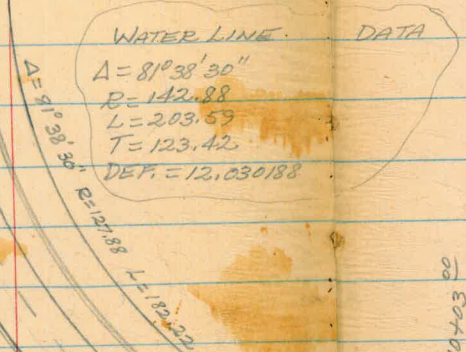 WATER LINE. DATA
Δ = 81° 38' 30"
R = 142.88
L = 203.59
T = 123.42
DEF. = 12.030188
Δ = 81° 38' 30" R = 127.88 L = 182.22
0+03.00